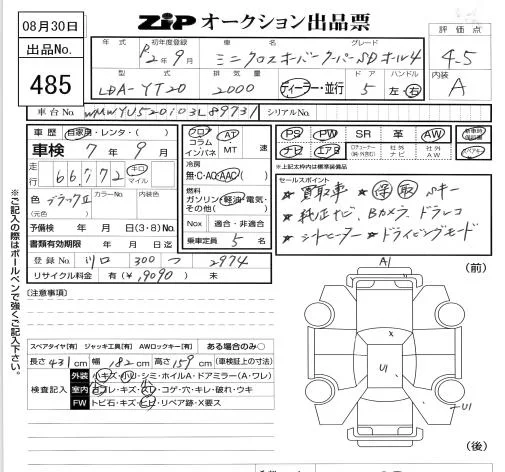 08月30日
出品No.
485
ZiP オークション出品票
評価点
4-5
内装
A
年式 初年度登録 車名 グレード
R2年9月 ミニクロスオーバー クーパーSD オール4
型式 排気量 ドア ハンドル
LDA-YT20 2000 ディーラー・並行 5 左・右
車台No. WMWYU520103L89731 シリアルNo.
車歴 自家用・レンタ・( )
車検 7年9月
走行 66,772 キロ マイル
色 ブラックⅡ カラーNo. 内装色
(元色)
予備検 年 月 日(3・8)No.
書類有効期限 年 月 日迄
登録No. 川口 300 つ 2974
リサイクル料金 有(¥,9090) 未
フロア コラム インパネ AT MT 速
冷房
無・C・AC・AAC( )
燃料
ガソリン・軽油・電気・その他( )
Nox 適合・非適合
乗車定員 5 名
PS PW SR 革 AW 新車時保証書
ナビ エアB 社外ナビ 社外AW スペアキー
★上記太枠内は標準装備品
セールスポイント
★買取車 ★保取Sキー
★純正ナビ、Bカメラ、ドラレコ
★シートヒーター ★ドライビングモード
※ご記入の際はボールペンで強くご記入下さい。
[注意事項]
スペアタイヤ[有] ジャッキ工具[有] AWロックキー[有] ある場合のみ○
長さ431cm 幅182cm 高さ159cm (車検証上の寸法)
検査記入
外装 小キズ・小U・シミ・ホイルA・ドアミラー(A・ワレ)
室内 内ヨゴレ・キズ・スレ・コゲ・穴・キレ・破れ・ウキ
FW トビ石・キズ・ヒビ・リペア跡・X要ス
(前)
A1
x
U1
U1
(後)